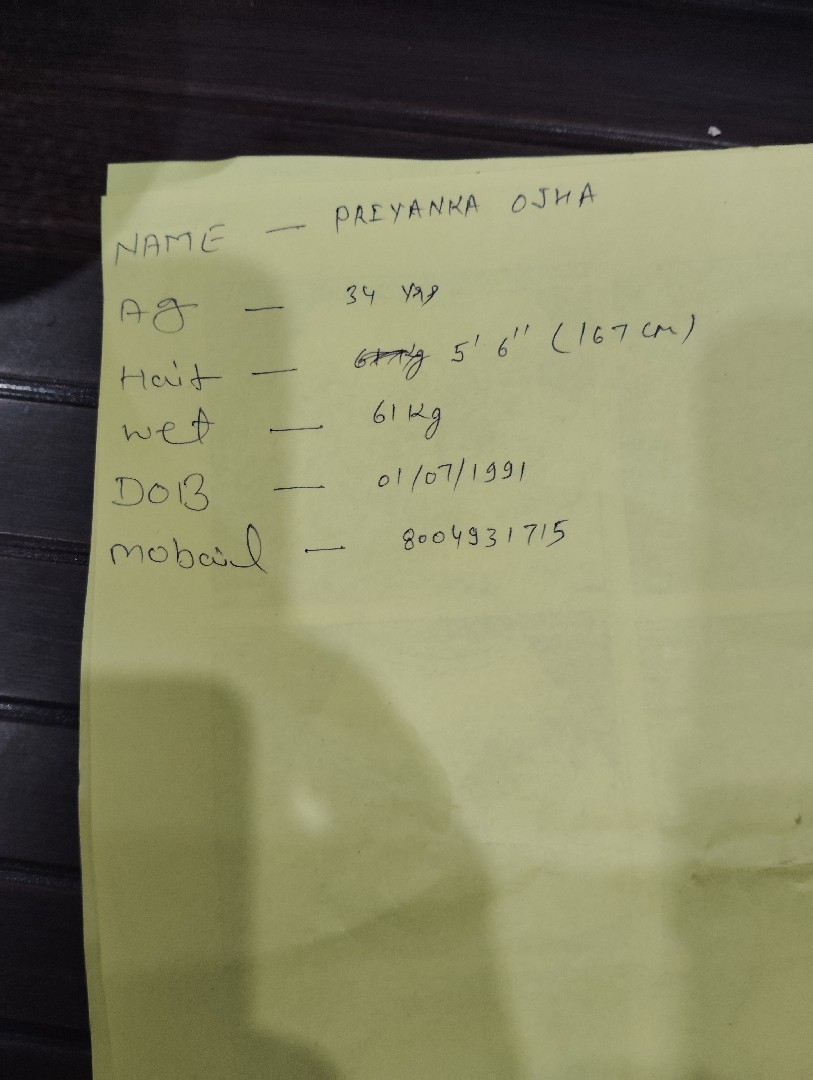 NAME — PRIYANKA OJHA
Ag — 34 yrs
Hait — 5' 6" (167 cm)
wet — 61 Kg
DOB — 01/07/1991
mobail — 8004931715